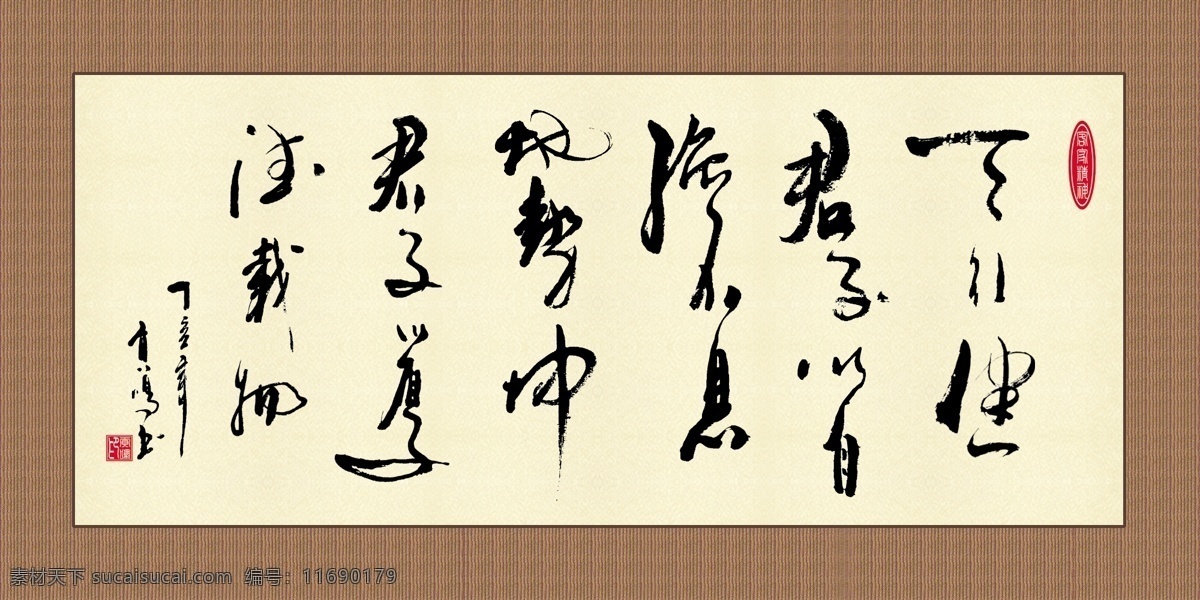 客家精神
天行健
君子以自
強不息
地勢坤
君子以厚
德載物
丁亥年
素材天下 sucaisucai.com 编号：11690179